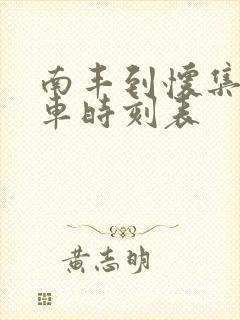 南丰到怀集
車時刻表
黄志明